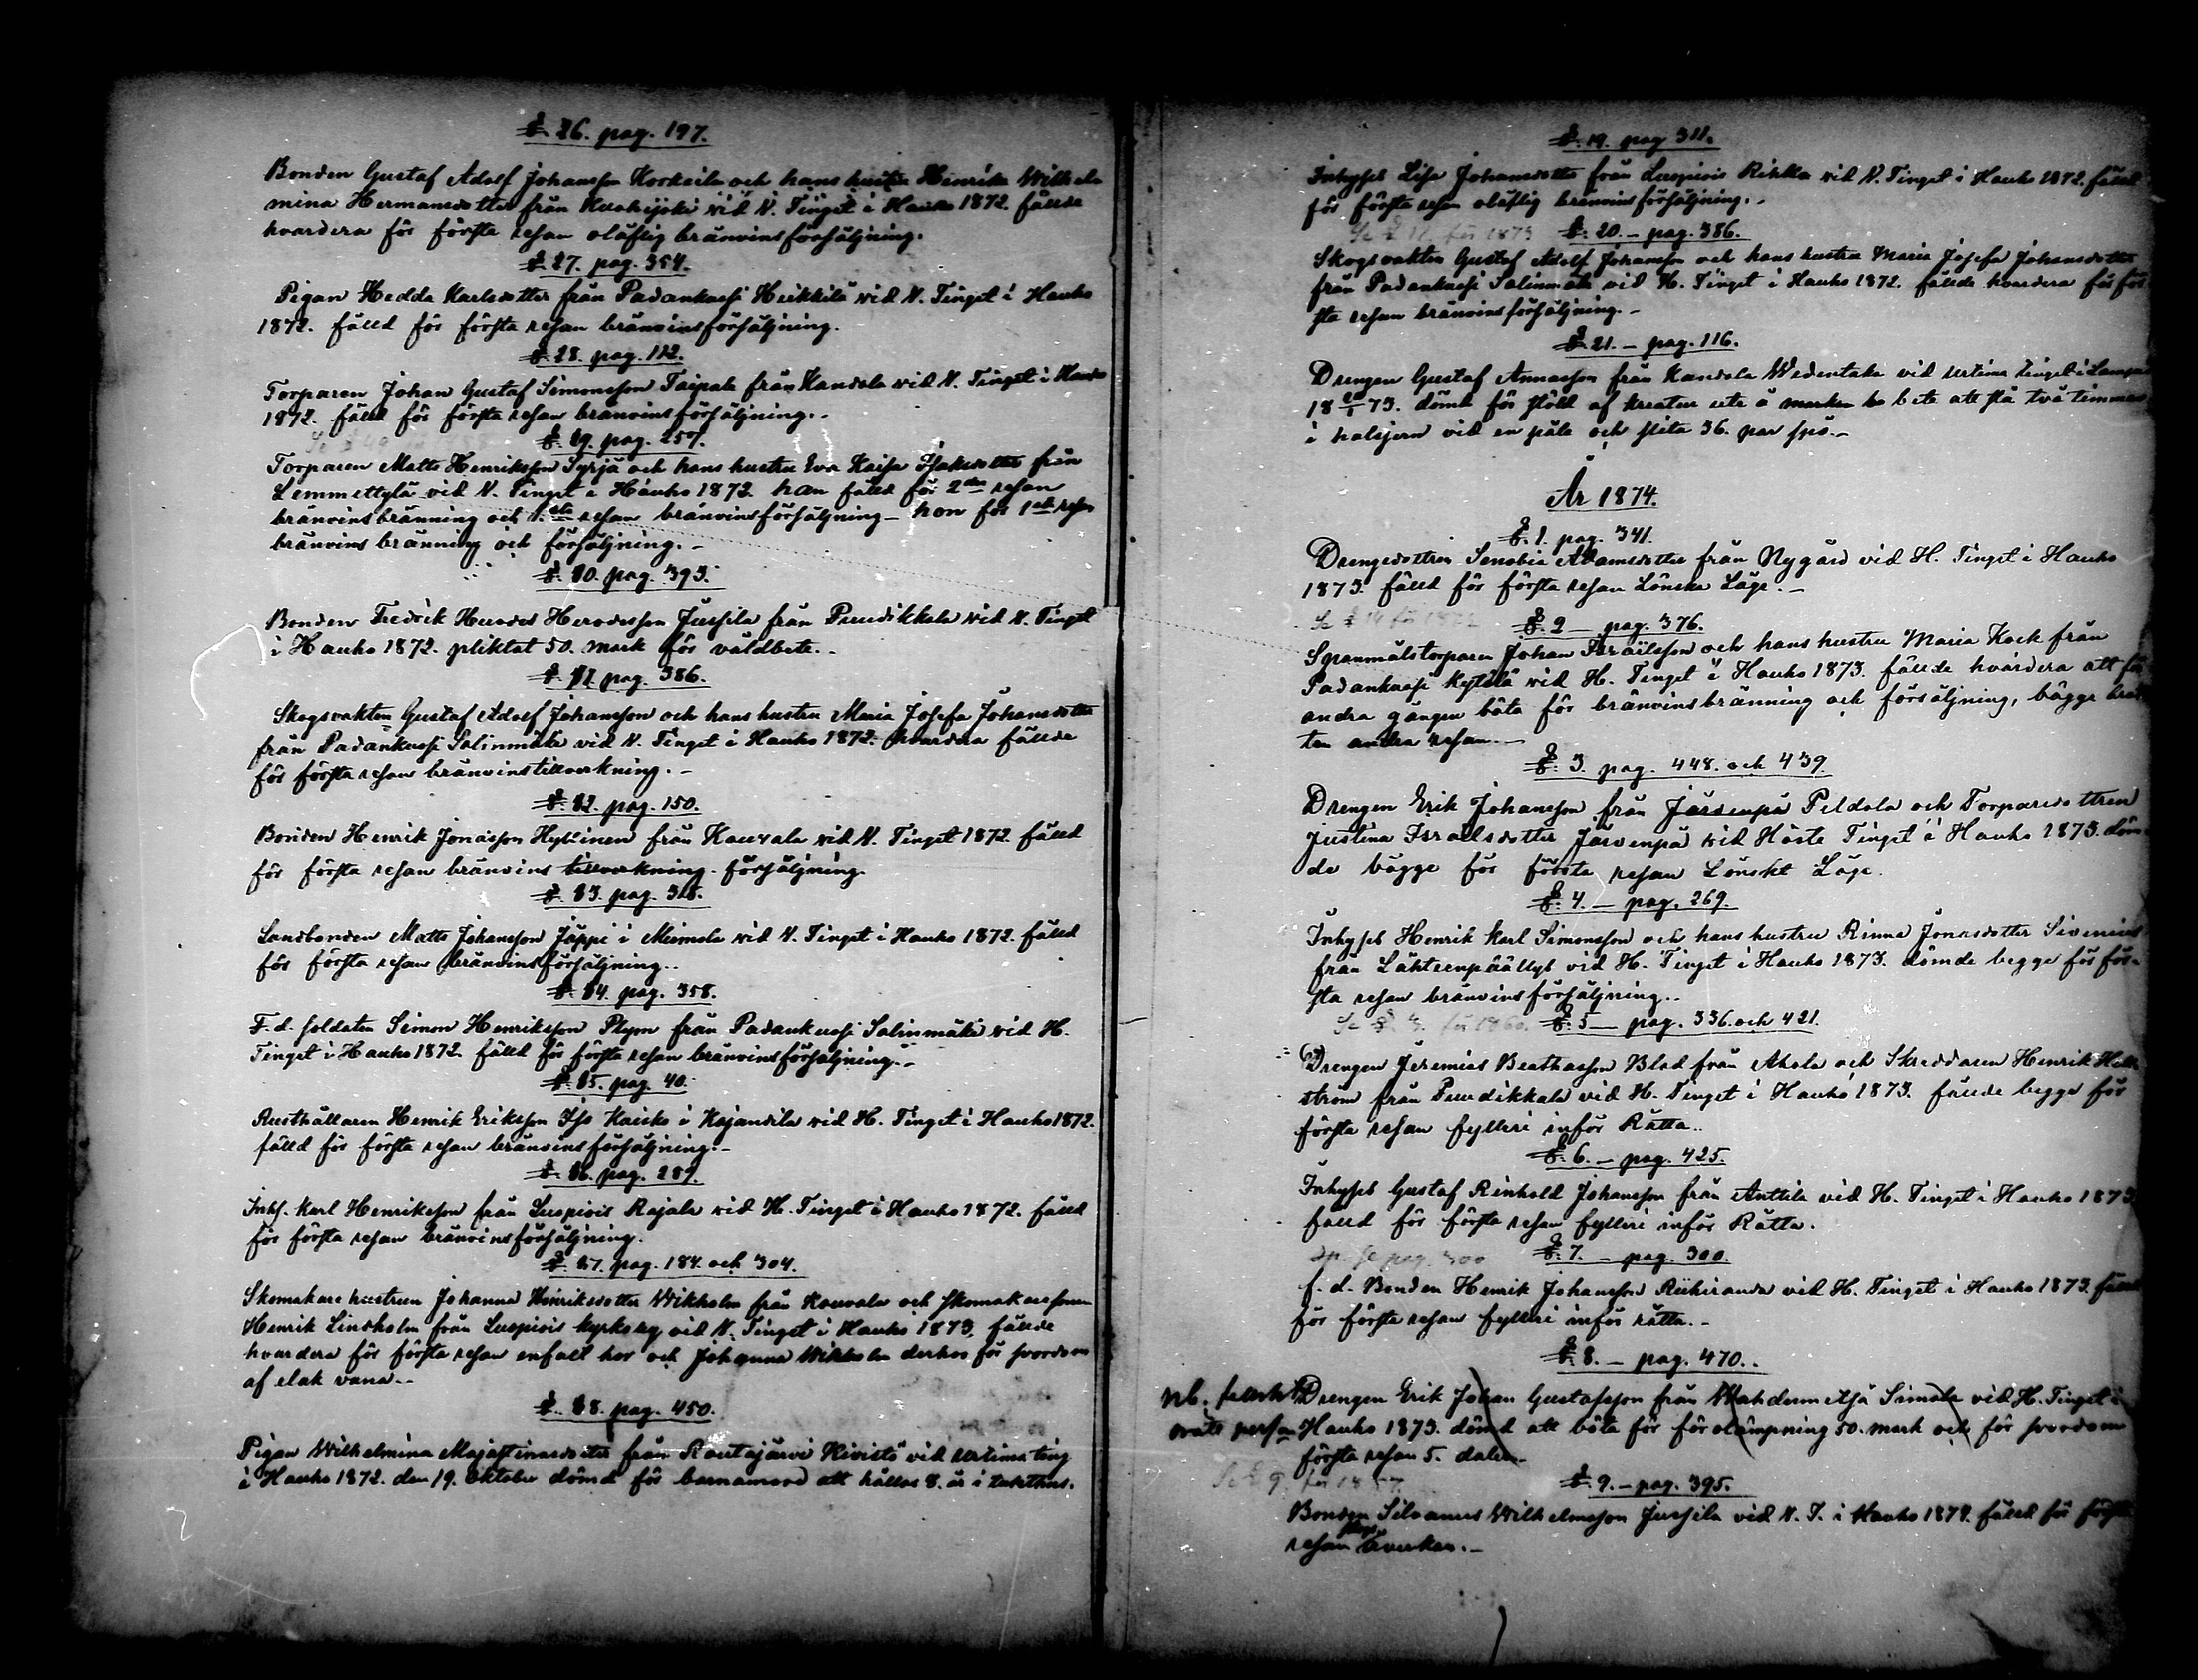 §. 26. pag. 197.
Bonden Gustaf Adolf Johansson Korkeila och hans hustru Henrika Wilhel
mina Hermansdotter från Kuohijoki vid V. Tinget i Hauho 1872. fällde
hvardera för första resan oläflig bränvinsförsäljning.
§. 27. pag. 354.
Pigan Hedda Karlsdotter från Padankoski Heikkilä vid V. Tinget i Hauho
1872. fälld för första resan bränvinsförsäljning.
§. 28. pag. 112.
Torparen Johan Gustaf Simonsson Taipale från Kandola vid V. Tinget i Hauho
1872. fälld för första resan bränvinsförsäljning.-
§. 29. pag. 257.
Torparen Matts Henriksson Syrjä och hans hustru Eva Kaisa Isaksdotter från
Lemmettylä vid V. Tinget i Hauho 1872. han fälld för 2dra resan
bränvinsbränning och 1.sta resan bränvinsförsäljning - hon för 1sta resan
bränvins bränning och försäljning. -
§. 30. pag. 393.
Bonden Fredrik Herodes Herodesson Jussila från Puudikkala vid V. Tinget
i Hauho 1872. pliktat 50. mark för våldbete..
§. 31. pag. 386.
Skogsvakten Gustaf Adolf Johansson och hans hustru Maria Josefa Johansdotter
från Padankoski Salinmäki vid V. Tinget i Hauho 1872. hvardera fällde
för första resan bränvinstillverkning. -
§. 32. pag. 150.
Bonden Henrik Jonasson Hyttinen från Kouvala vid V. Tinget 1872 fälld
för första resan bränvins tillverkning. försäljning.
§. 33. pag. 318.
Landbonden Matts Johansson Jäppi i Miemola vid V. Tinget i Hauho 1872. fälld
för första resan bränvinsförsäljning..
§. 34. pag. 358.
F. d. soldaten Simon Henriksson Plym från Padankoski Salinmäki vid H.
Tinget i Hauho 1872. fälld för första resan bränvinsförsäljning.-
§. 35. pag. 40.
Rusthållaren Henrik Eriksson Iso Kaisko i Kajandila vid H. Tinget i Hauho 1872.
fälld för första resan bränvinsförsäljning.-
§. 36. pag. 289.
Inhs. Karl Henriksson från Luopiois Rajala vid H. Tinget i Hauho 1872. fälld
för första resan bränvinsförsäljning.
§. 37. pag. 184. och 304.
Skomakare hustrun Johanna Henriksdotter Wikholm från Kouvala och skomakaresonen
Henrik Lindholm från Luopiois kyrkoby vid V. Tinget i Hauho 1873. fällde
hvardera för första resan enfalt hor och Johanna Wikholm derhos för svordom
af elak vana..
§. 38. pag. 450.
Pigan Wilhelmina Majastinasdotter från Rautajärvi Kivistö vid Urtima ting
i Hauho 1872. den 19. Oktober dömd för barnamord att hållas 8. år i tukthus.
§. 19. pag 311.
Inhyses Lisa Johansdotter från Luopiois Rikkla vid V. Tinget i Hauho 1872. fälld
för första resan oläflig bränvinsförsäljning.-
§. 20. - pag. 386.
Skogsvakten Gustaf Adolf Johansson och hans hustru Maria Josefa Johansdotter
från Padankoski Salinmäki vid H. Tinget i Hauho 1872. fällde hvardera för för
sta resan bränvinsförsäljning. -
§. 21. - pag. 116.
Drengen Gustaf Annasson från Kandola Wedentaka vid Urtima Tinget i
18 73. dömd för stöld af kreatur ute å marken bete att stå två timmar
i halsjern vid en påle och slita 36. par spö.-
År 1874.
§. 1. pag. 341.
Drengedottren Senobia Adamsdotter från Nygård vid H. Tinget i Hauho
1873. fälld för första resan Lönska Läge. -
§. 2 - pag. 376.
Spanmålstorparen Johan Israelsson och hans hustru Maria Kock från
Padankoski Kyttälä vid H. Tinget i Hauho 1873. fällde hvardera att för
andra gången böta för bränvinsbränning och försäljning, bägge
ten andra resan.-
§. 3. pag. 448. och 439.
Drengen Erik Johansson från Järvenpä Peldola och Torparedottren
Justina Israelsdotter Järvenpä vid Höste Tinget i Hauho 1873. döm-
da bägge för första resan Lönskt Läge.
§. 4. - pag. 269.
Inhyses Henrik Karl Simonsson och hans hustru Rinna Jonasdotter Sivenius
från Lähteenpäällys vid H. Tinget i Hauho 1873. dömde begge för för-
sta resan bränvinsförsäljning..
Se § 3. för 1860. §. 5 - pag. 336. och 421.
Drengen Jeremias Beathasson Blad från Ahola och Skreddaren Henrik
ström från Puudikkala vid H. Tinget i Hauho 1873. fällde begge för
första resan fylleri inför Rätta..
§. 6. - pag. 425.
Inhyses Gustaf Reinhold Johansson från Anttila vid H. Tinget i Hauho 1873
fälld för första resan fylleri inför Rätta.
se pag. 300 §. 7. - pag. 300.
f. d. Bonden Henrik Johansson Riihiranda vid H. Tinget i Hauho 1873. fälld
för första resan fylleri inför rätta. -
§. 8. - pag. 470..
Nb. Drengen Erik Johan Gustafsson från Wahdermetsä Simola vid H. Tinget i
Hauho 1873. dömd att böta för förolämpning 50. mark och för svordom
första resan 5. daler.
§. 9. - pag. 395.
Bonden Silvanus Wilhelmsson Jussila vid V. T. i Hauho 1874. fälld för första
resan skogs åverkan. -